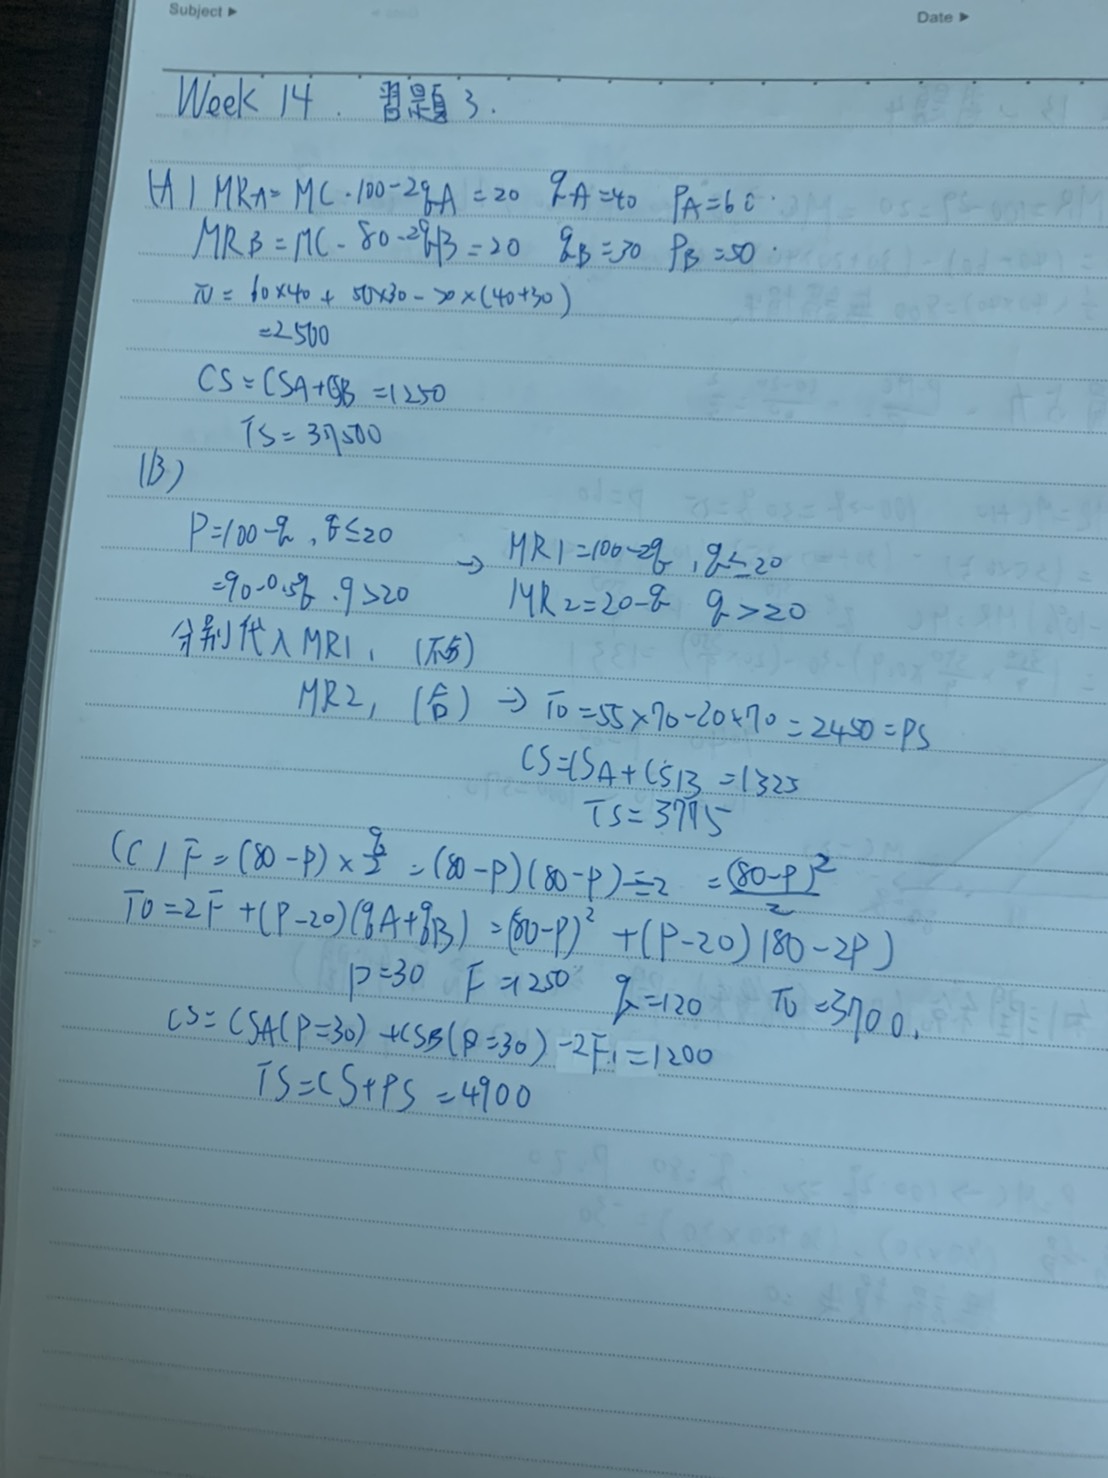 Subject ▶
Date ▶
Week 14. 習題3.
(A) MRA = MC. 100-2qA = 20 qA = 40 PA = 60.
MRB = MC - 80-2qB = 20 qB = 30 PB = 50.
π = 60×40 + 50×30 - 20×(40+30)
= 2500
CS = CSA + CSB = 1250
TS = 37500
(B)
P = 100-q, q≤20 → MR1 = 100-2q, q≤20
= 90-0.5q, q>20 MR2 = 20-q q>20
分別代入MR1, (不合)
MR2, (合) → π = 55×70-20×70 = 2450 = PS
CS = CSA + CSB = 1325
TS = 3775
(C) F = (80-P) × q/2 = (80-P)(80-P)÷2 = (80-P)²/2
π = 2F + (P-20)(qA+qB) = (80-P)² + (P-20)(180-2P)
P = 30 F = 1250 q = 120 π = 3700.
CS = CSA(P=30) + CSB(P=30) - 2F, = 1200
TS = CS+PS = 4900